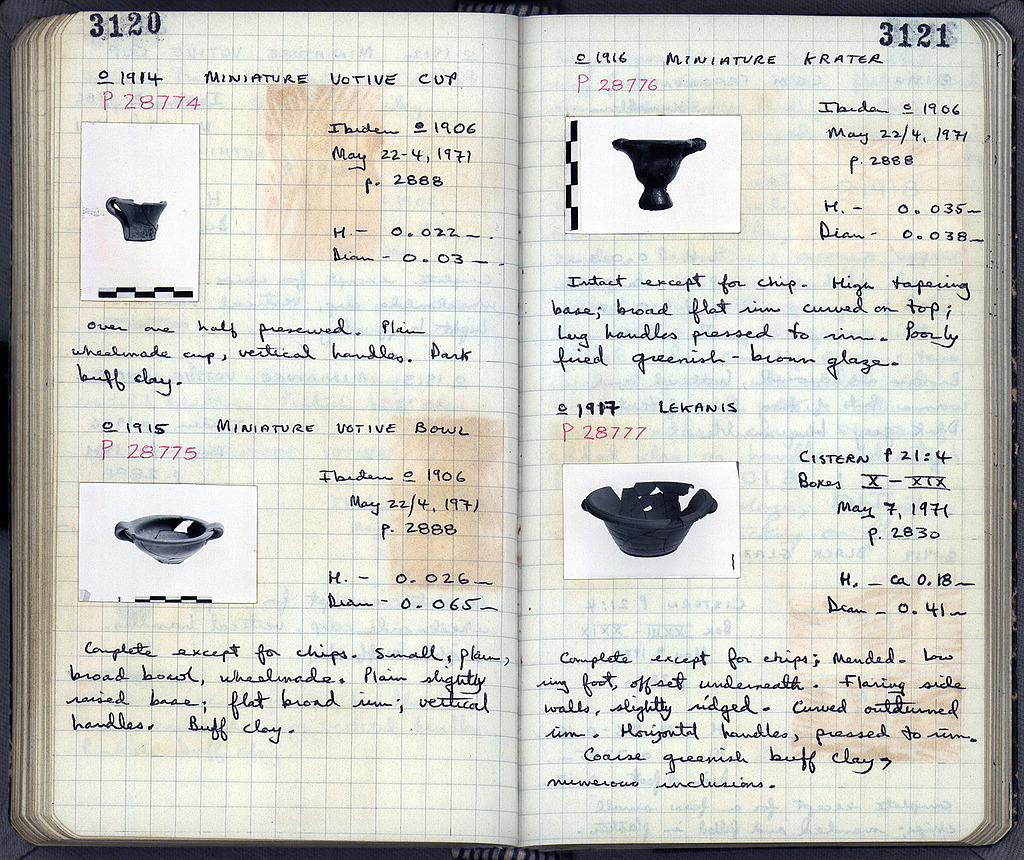 3120
o 1914 MINIATURE VOTIVE CUP
P 28774
Ibidem o 1906
May 22-4, 1971
p. 2888
H. - 0.022 m.
Diam - 0.03 m.
Over one half preserved. Plain
wheelmade cup, vertical handles. Dark
buff clay.
o 1915 MINIATURE VOTIVE BOWL
P 28775
Ibidem o 1906
May 22/4, 1971
p. 2888
H. - 0.026 m
Diam - 0.065 m
Complete except for chips. Small, plain,
broad bowl, wheelmade. Plain slightly
raised base; flat broad rim; vertical
handles. Buff clay.
3121
o 1916 MINIATURE KRATER
P 28776
Ibidem o 1906
May 22/4, 1971
p. 2888
H. - 0.035 m
Diam - 0.038 m
Intact except for chip. High tapering
base; broad flat rim curved on top;
lug handles pressed to rim. Poorly
fired greenish-brown glaze.
o 1917 LEKANIS
P 28777
CISTERN P 21:4
Boxes X - XIX
May 7, 1971
p. 2830
H. - ca 0.18 m
Diam - 0.41 m
Complete except for chips; Mended. Low
ring foot, offset underneath. Flaring side
walls, slightly ridged. Curved outturned
rim. Horizontal handles, pressed to rim.
Coarse greenish buff clay,
numerous inclusions.